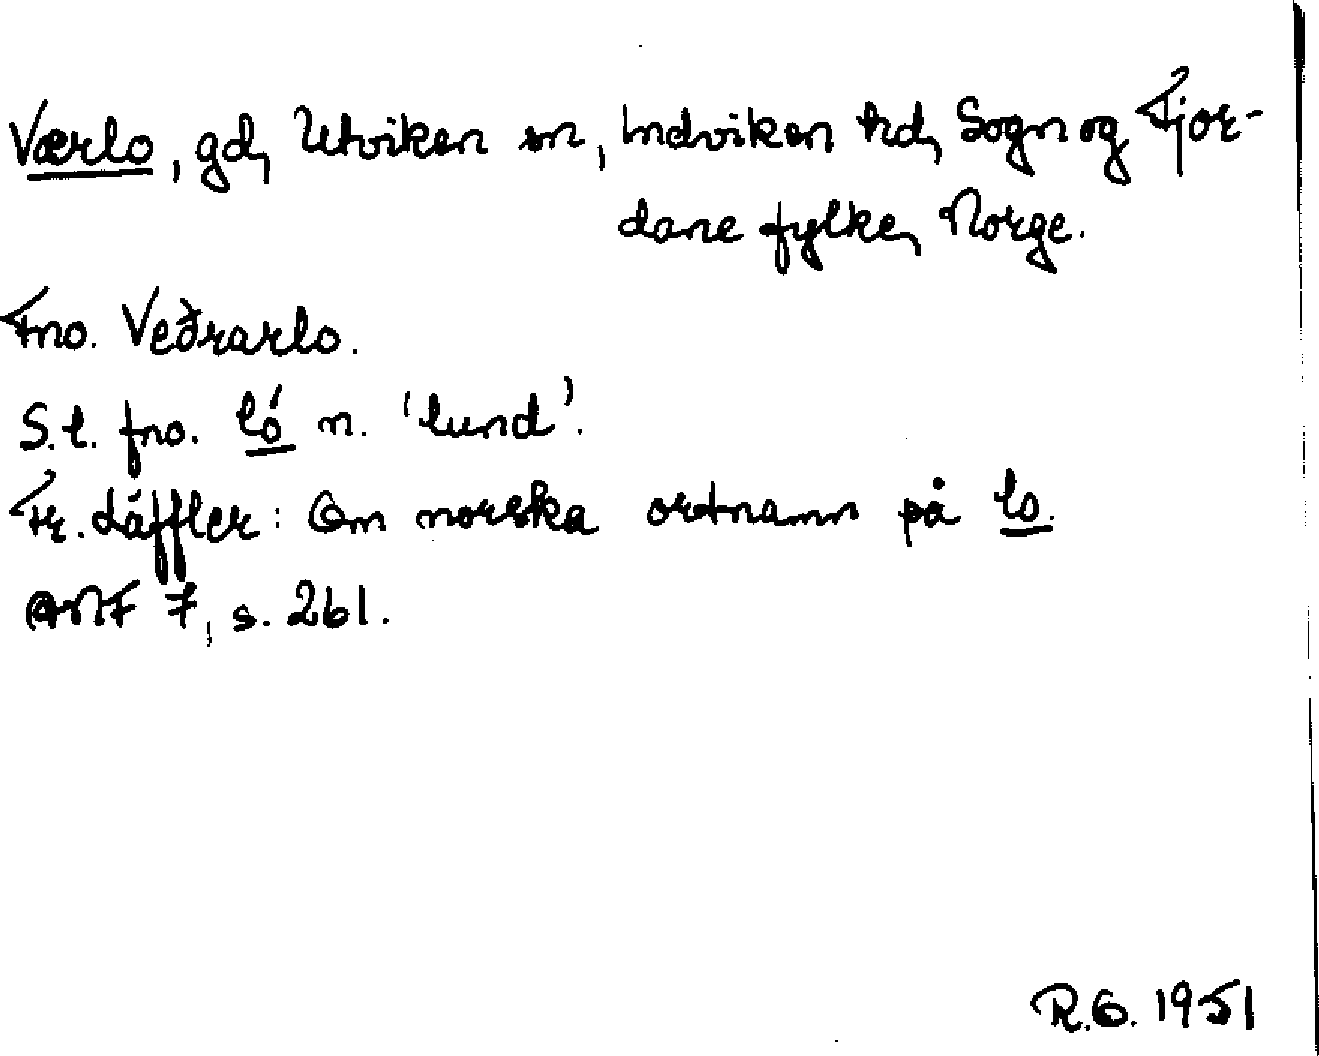 Værlo, gd, Utviken sn, Indviken hd, Sogn og Fjor-
dane fylke, Norge.
Fno. Veðrarlo.
S.l. fno. ló n. 'lund'.
Fr. Läffler: Om norska ortnamn på lo.
ANF 7, s. 261.
R.G. 1951